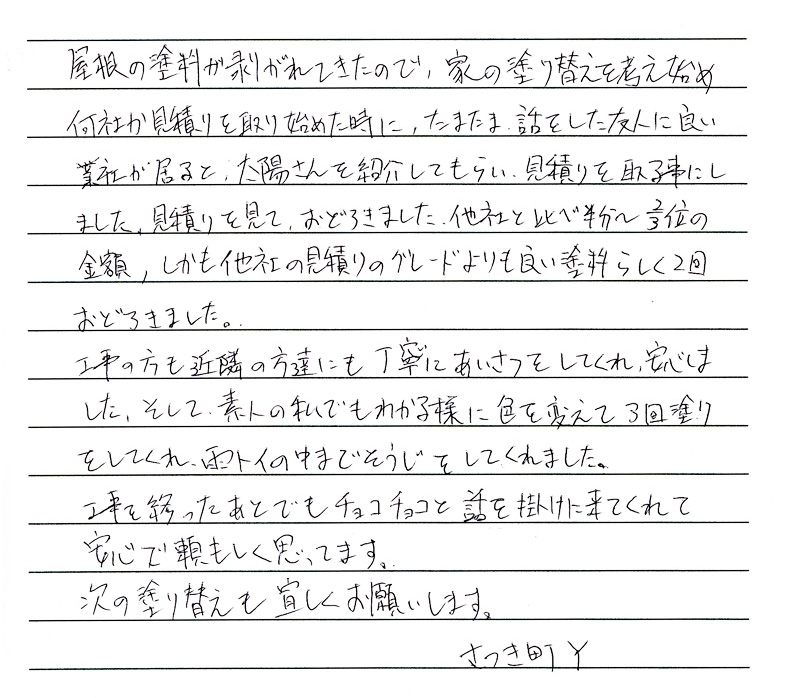 屋根の塗料が剥がれてきたので、家の塗り替えを考え始め
何社か見積りを取り始めた時に、たまたま、話をした友人に良い
業社が居ると、太陽さんを紹介してもらい、見積りを取る事にし
ました。見積りを見て、おどろきました。他社と比べ半分〜2/3位の
金額、しかも他社の見積りのグレードよりも良い塗料らしく2回
おどろきました。
工事の方も近隣の方達にも丁寧にあいさつをしてくれ、安心しま
した。そして、素人の私でもわかる様に色を変えて3回塗り
をしてくれ、雨トイの中までそうじをしてくれました。
工事を終ったあとでもチョコチョコと話を掛けに来てくれて
安心で頼もしく思ってます。
次の塗り替えも宜しくお願いします。
さつき町 Y